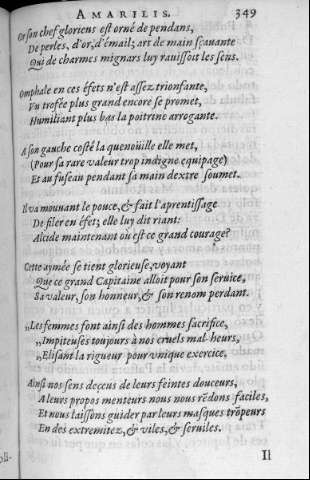 AMARILIS. 349
Or son chef glorieus est orné de pendans,
De perles, d'or, d'émail; art de main sçauante
Qui de charmes mignars luy rauissoit les sens.
Omphale en ces éfets n'est assez trionfante,
Vn trofée plus grand encore se promet,
Humiliant plus bas la poitrine arrogante.
A son gauche costé la quenoüille elle met,
(Pour sa rare valeur trop indigne equipage)
Et au fuseau pendant sa main dextre soumet.
Il va mouuant le pouce, & fait l'aprentissage
De filer en éfet; elle luy dit riant:
Alcide maintenant où est ce grand courage?
Cette aymée se tient glorieuse, voyant
Que ce grand Capitaine alloit pour son seruice,
Sa valeur, son honneur, & son renom perdant.
„Les femmes font ainsi des hommes sacrifice,
„Impiteuses toujours à nos cruels mal-heurs,
„Elisant la rigueur pour vnique exercice,
Ainsi nos sens deceus de leurs feintes douceurs,
A leurs propos menteurs nous nous rẽdons faciles,
Et nous laissons guider par leurs masques trõpeurs
En des extremitez, & viles, & seruiles.
Il